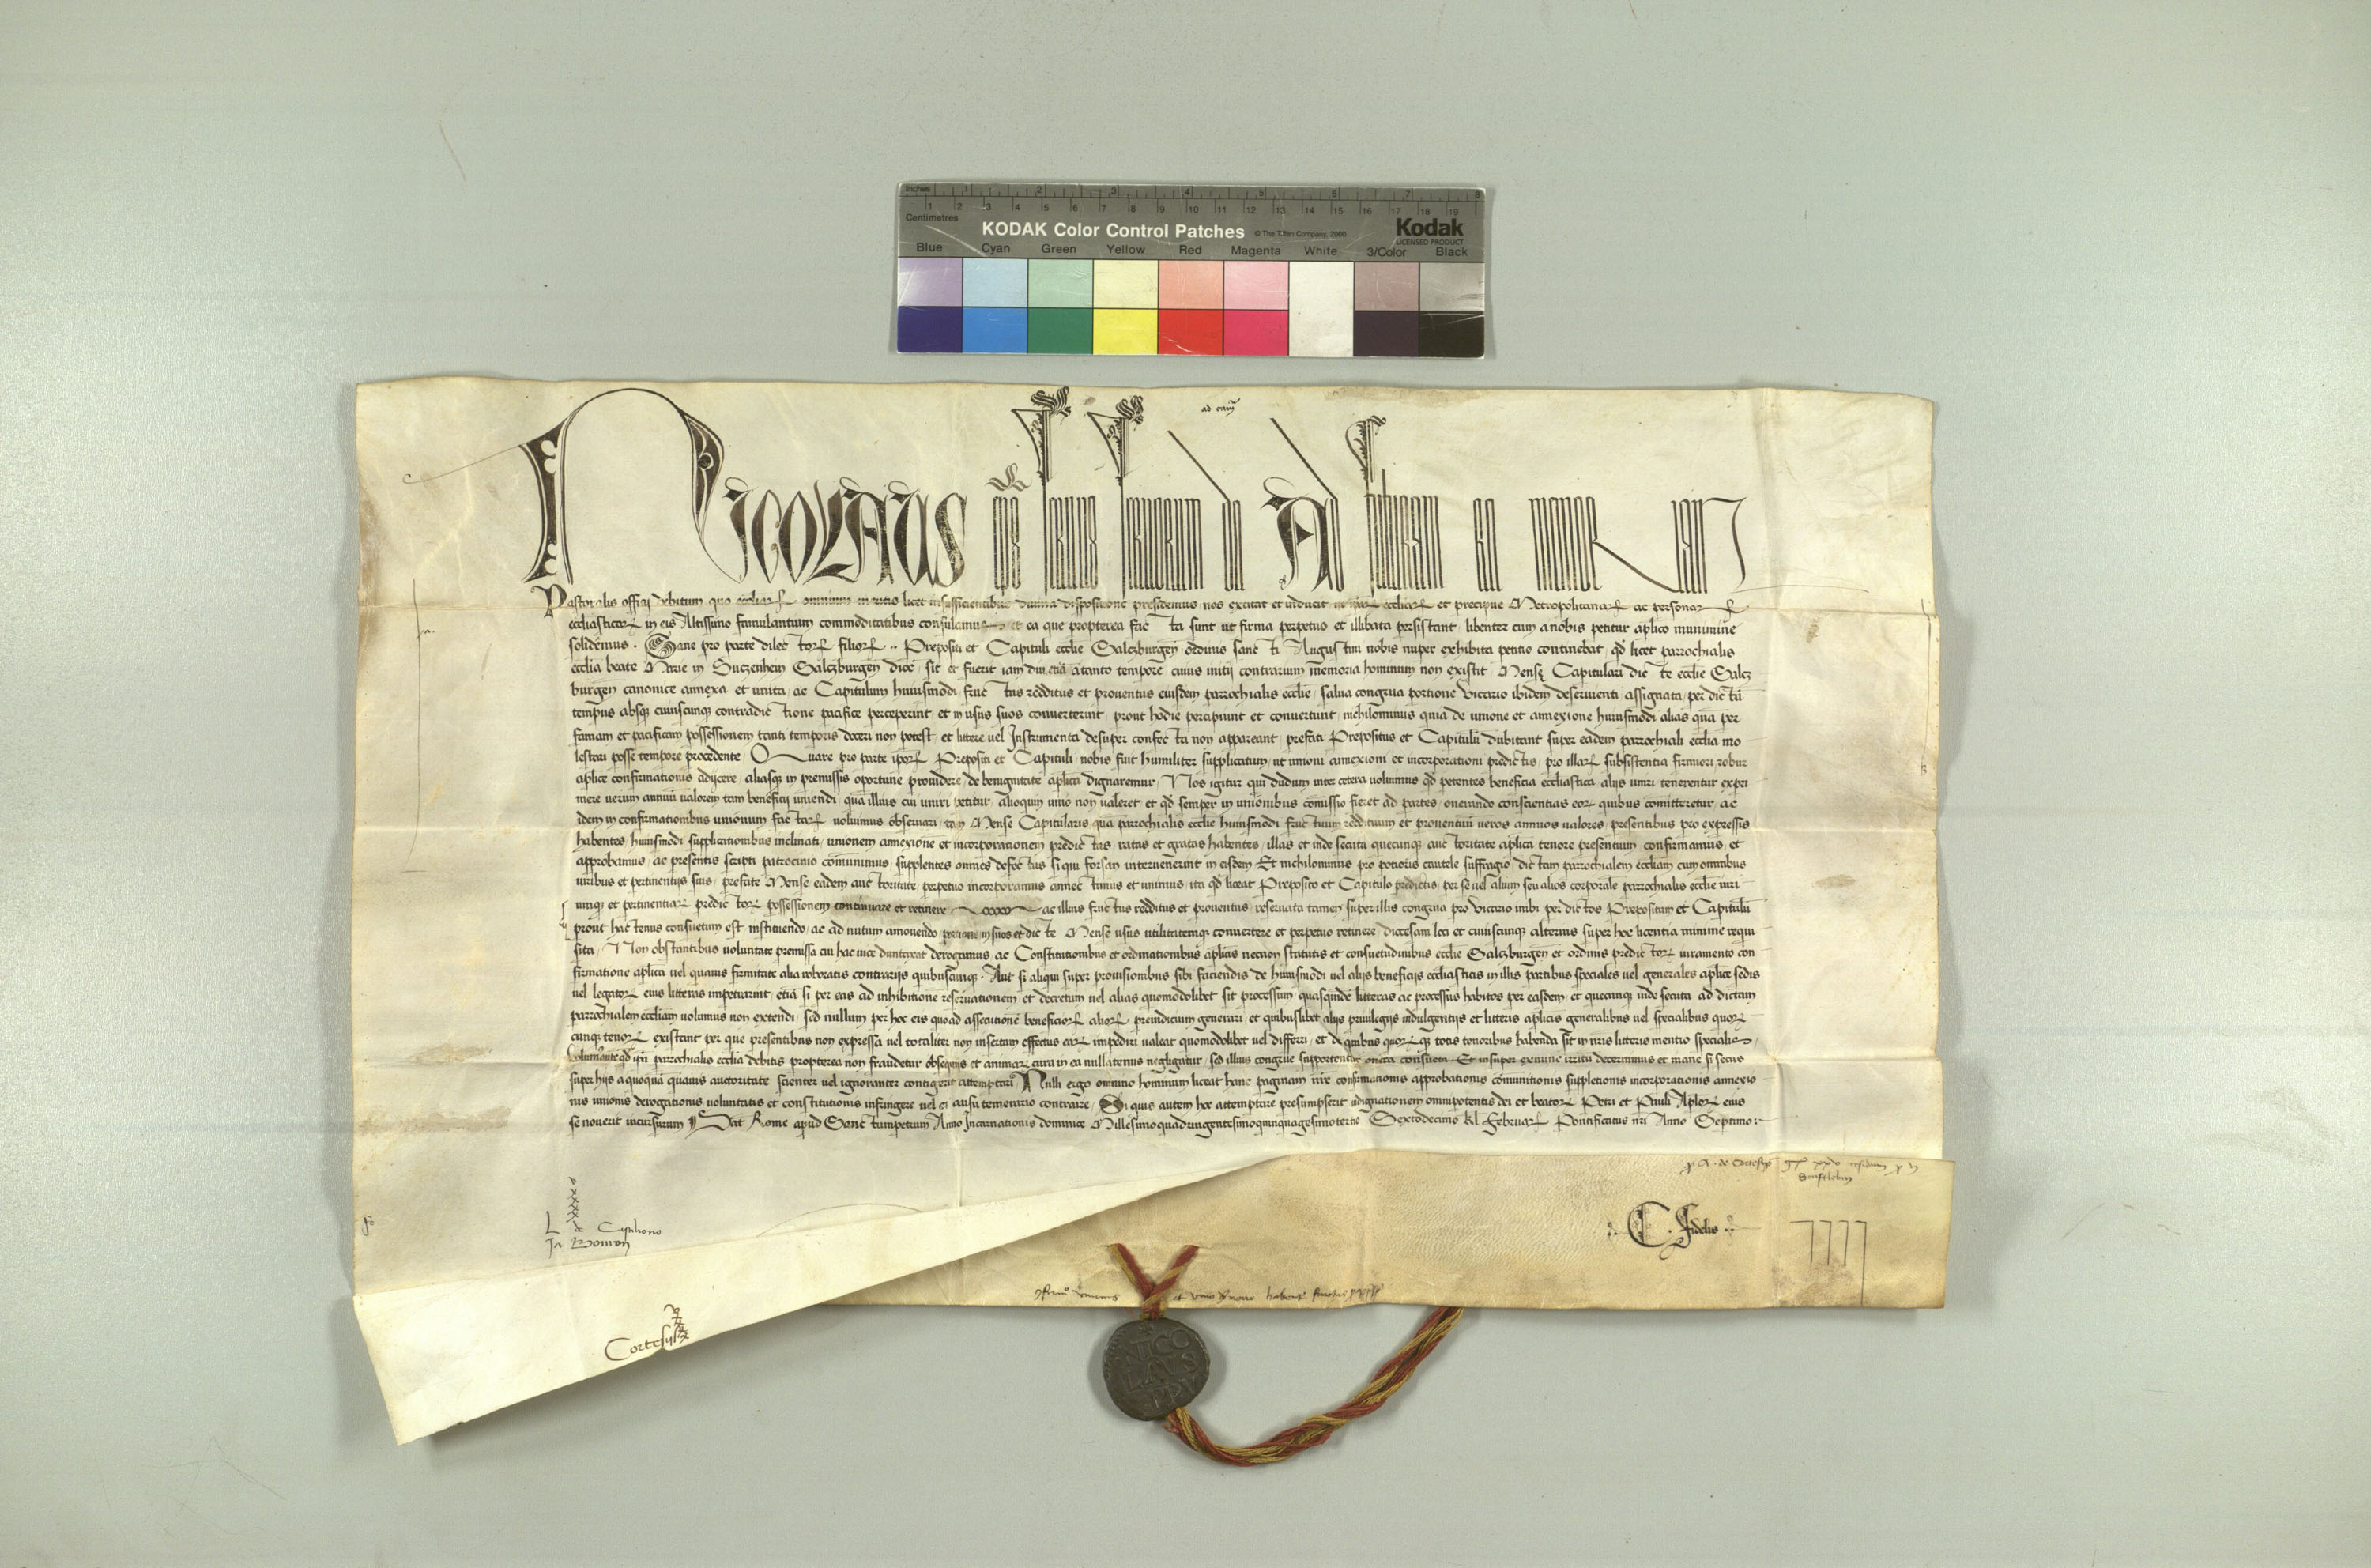 Inches 1 2 3 4 5 6 7 8
1 2 3 4 5 6 7 8 9 10 11 12 13 14 15 16 17 18 19
Centimetres
KODAK Color Control Patches © The Tiffen Company, 2000 Kodak
LICENSED PRODUCT
Blue Cyan Green Yellow Red Magenta White 3/Color Black
ad
Nicolaus ep̄s seruus seruorum dei Ad futuram rei memor iam
Pastoralis officij debitum quo eccliarꝝ omnium meritis licet insufficientibus diuina dispositione presidemus nos excitat et inducit ut eccliarꝝ et precipue Metropolitanarꝝ ac personarꝝ
ecclīasticarꝝ in eis Altissimo famulantium commoditatibus consulamus et ea que propterea facta sunt ut firma perpetuo et illibata persistant libenter cum a nobis petitur aplico munimine
solidemus. Sane pro parte dilectorꝝ filiorꝝ .. Prepositi et Capituli ecclie Salczburgeñ ordinis sancti Augustini nobis nuper exhibita petitio continebat, qd̄ licet parrochialis
ecclia beate Marie in Suczenhem Salczburgeñ diocē sit et fuerit iam diu etiā a tanto tempore cuius initij contrarium memoria hominum non existit Mense Capitulari dicte ecclie Salcz
burgeñ canonice annexa et unita, ac Capitulum huiusmodi fructus redditus et prouentus eiusdem parrochialis ecclie, salua congrua portione Vicario ibidem deseruienti assignata, per dictū
tempus absqꝫ cuiuscunqꝫ contradictione pacifice perceperint, et in usus suos conuerterint, prout hodie percipiunt et conuertunt, nichilominus quia de unione et annexione huiusmodi alias quā per
famam et pacificam possessionem tanti temporis doceri non potest, et littere uel Instrumenta desuper confecta non appareant, prefati Prepositus et Capitulū dubitant super eadem parrochiali ecclia mo
lestari posse tempore procedente. Quare pro parte ipsorꝝ Prepositi et Capituli nobis fuit humiliter supplicatum, ut unioni annexioni et incorporationi predictis, pro illarꝝ subsistentia firmiori, robur
aplice confirmationis adijcere, aliasqꝫ in premissis oportune prouidere de benignitate aplica dignaremur. Nos igitur qui dudum inter cetera uolumus qd̄ petentes beneficia ecclīastica alijs uniri tenerentur expri
mere uerum annuū ualorem tam beneficij uniendi quā illius cui uniri petitur, alioquin unio non ualeret et qd̄ semper in unionibus cōmissio fieret ad partes, onerando conscientias eorꝝ quibus cōmitteretur, ac
idem in confirmationibus unionum factarꝝ uoluimus obseruari, tam Mense Capitularis quā parrochialis ecclie huiusmodi fructuum reddituum et prouentuū ueros annuos ualores, presentibus pro expressis
habentes, huiusmodi supplicationibus inclinati, unionem annexione et incorporationem predictas, ratas et gratas habentes, illas et inde secuta quecunqꝫ auctoritate aplica tenore presentium confirmamus, et
approbamus, ac presentis scripti patrocinio cōmunimus, supplentes omnes defectus si qui forsan interuenerint in eisdem. Et nichilominus pro potioris cautele suffragio dictam parrochialem eccliam cum omnibus
iuribus et pertinentijs suis, prefate Mense eadem auctoritate, perpetuo incorporamus annectimus et unimus, ita qd̄ liceat Preposito et Capitulo predictis, per se uel alium seu alios corporalē parrochialis ecclie iuri
umqꝫ et pertinentiarꝝ predictorꝝ possessionem continuare et retinere ac illius fructus redditus et prouentus, reseruata tamen super illis congrua pro Vicario inibi per dictos Prepositum et Capitulū
prout hactenus consuetum est instituendo, ac ad nutum amouendo, portione in suos et dicte Mense usus utilitatemqꝫ conuertere et perpetuo retinere, diocesani loci et cuiuscunqꝫ alterius super hoc licentia minime requi
sita. Non obstantibus uoluntate premissa cui hac uice duntaxat derogamus, ac Constitutionibus et ordinationibus aplicis necnon statutis et consuetudinibus ecclie Salczburgeñ et ordinis predictorꝝ iuramento con
firmatione aplica uel quauis firmitate alia roboratis contrarijs quibuscunqꝫ. Aut si aliqui super prouisionibus sibi faciendis de huiusmodi uel alijs beneficijs ecclīasticis in illis partibus speciales uel generales aplice sedis
uel legatorꝝ eius litteras impetrarint, etiā si per eas ad inhibitionē reseruationem et decretum uel alias quomodolibet sit processum, quasquidē litteras ac processus habitos per easdem, et quecunqꝫ inde secuta ad dictam
parrochialem eccliam uolumus non extendi, sed nullum per hoc eis quoad assecutionē beneficiorꝝ aliorꝝ preiudicium generari, et quibuslibet alijs priuilegijs indulgentijs et litteris aplicis generalibus uel specialibus quorꝝ
cunqꝫ tenorꝝ existant, per que presentibus non expressa uel totaliter non inserta effectus earꝝ impediri ualeat quomodolibet uel differri, et de quibus quorꝝqꝫ totis tenoribus habenda sit in nr̄is litteris mentio specialis,
uolumus aūt qd̄ ip̄a parrochialis ecclia debitis propterea non fraudetur obsequijs et animarꝝ cura in ea nullatenus negligatur, sed illius congrue supportentur onera consueta. Et insuper exnunc irritū decernimus et inane si secus
super hijs a quoquā quauis auctoritate scienter uel ignoranter contigerit attemptari. Nulli ergo omnino hominum liceat hanc paginam nr̄e confirmationis approbationis cōmunitionis suppletionis incorporationis annexio
nis unionis derogationis uoluntatis et constitutionis infringere uel ei ausu temerario contraire. Si quis autem hoc attemptare presumpserit indignationem omnipotentis dei et beatorꝝ Petri et Pauli Aplorꝝ eius
se nouerit incursurum. Dat̄ Rome apud Sanctumpetrum Anno Incarnationis dominice Millesimoquadringentesimoquinquagesimotertio Sextodecimo kl̄ Februarꝝ Pontificatus nr̄i Anno Septimo:
A. de Cortesijs
L. de Castiliono
Ja Bomon
C. Fidelis
Cortesijs
NICO
LAVS
PP V